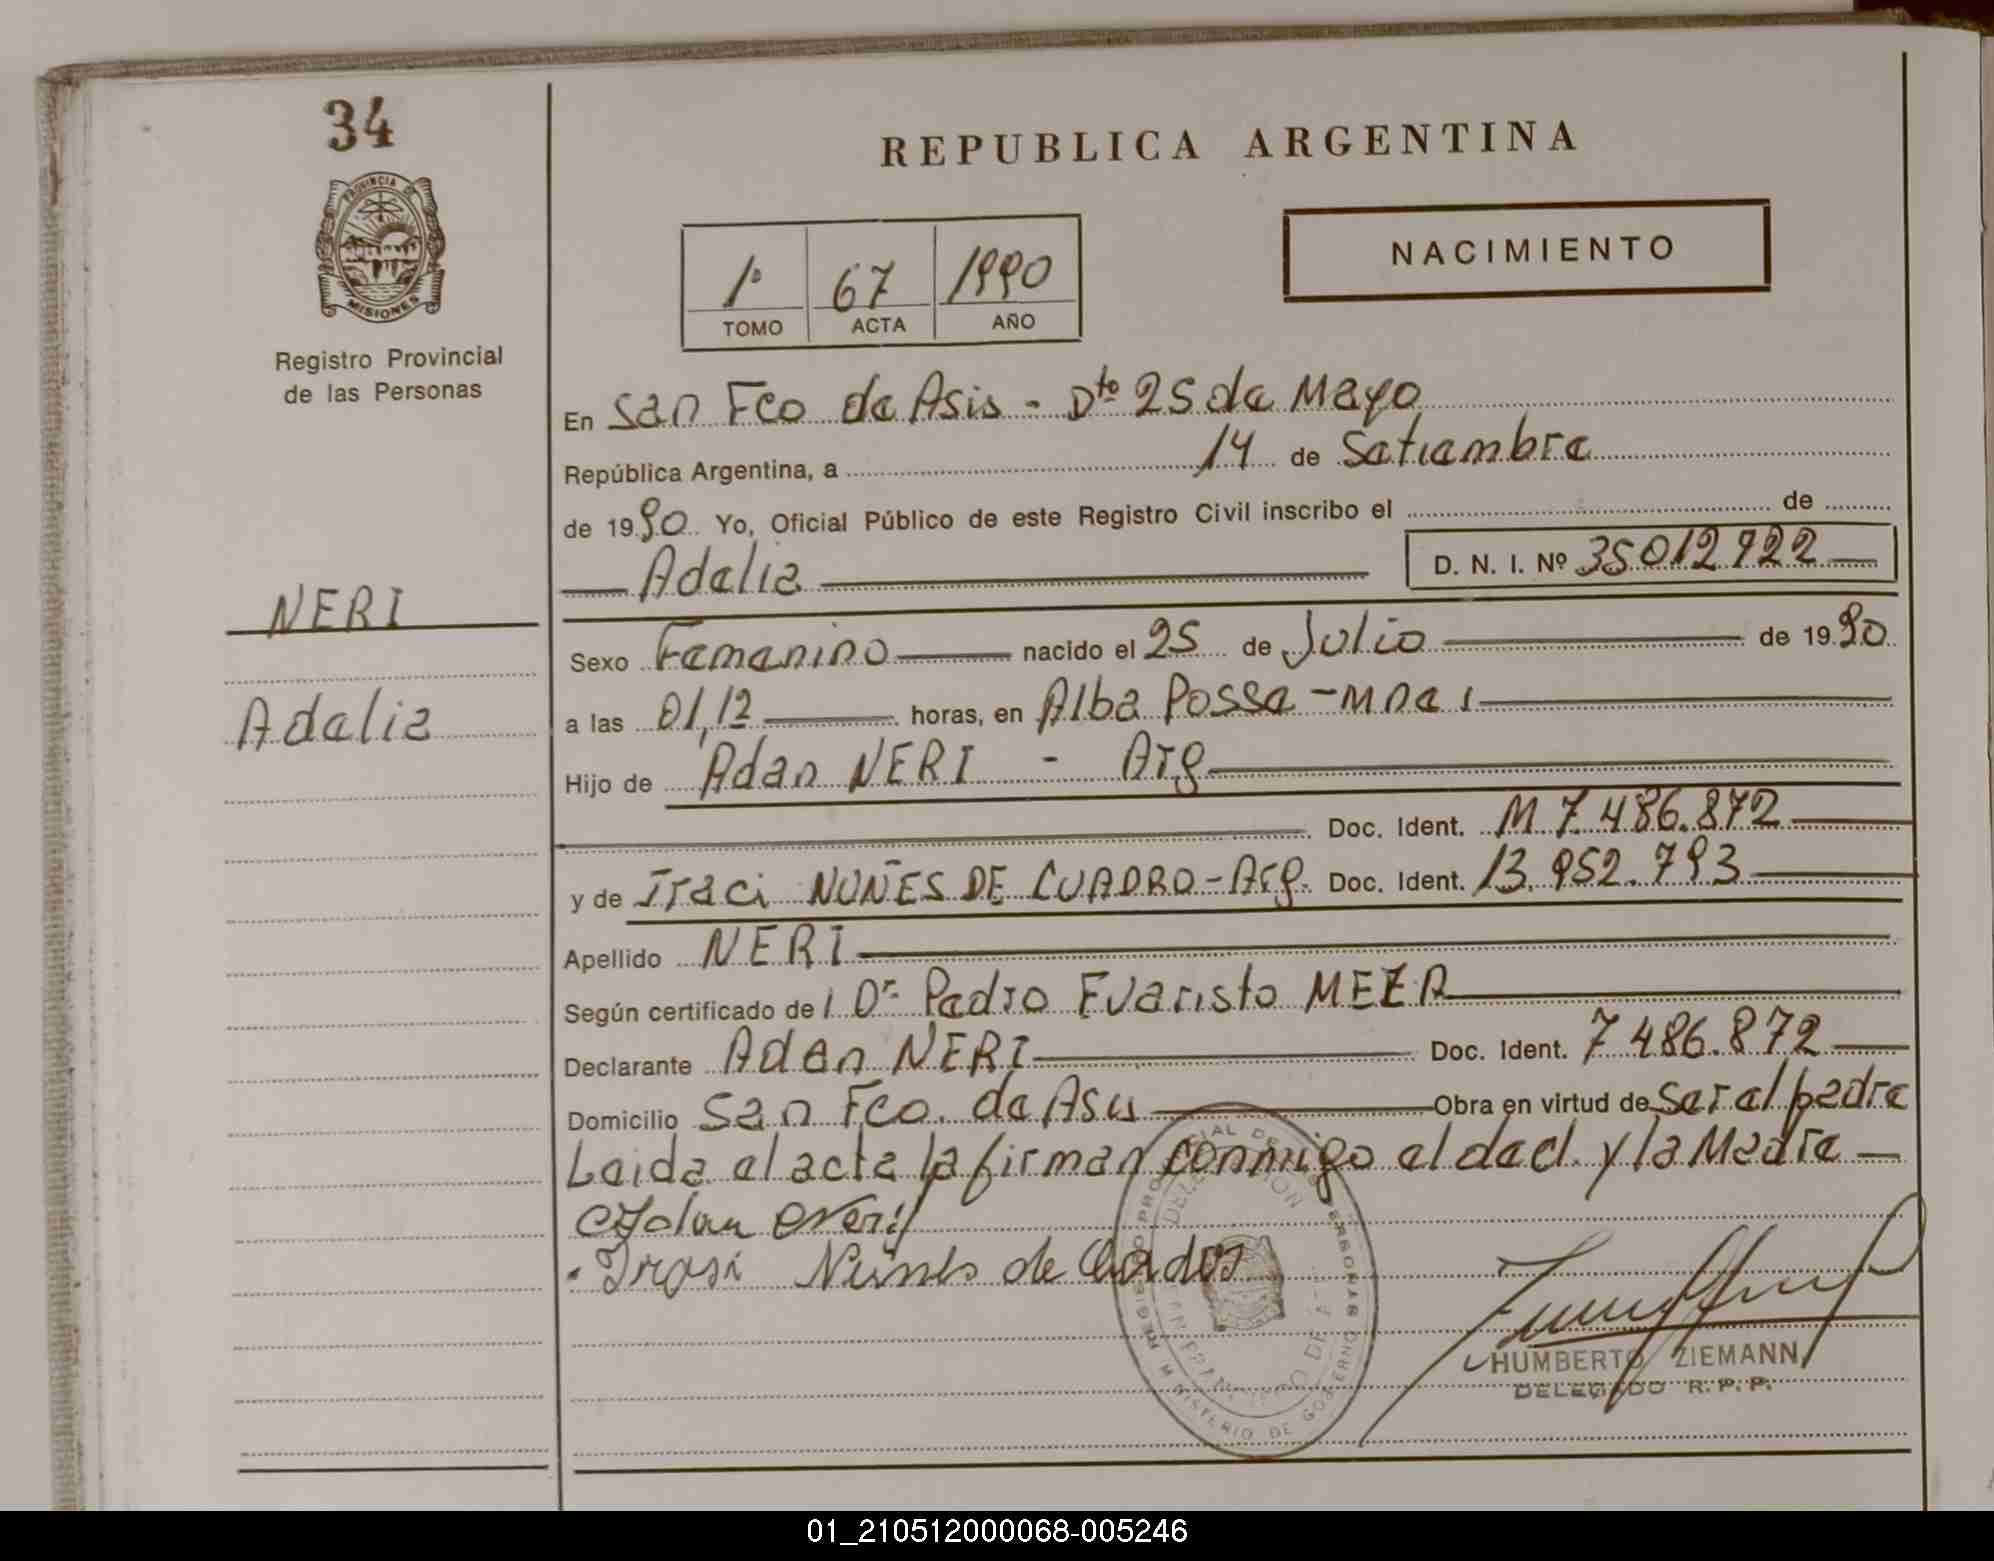 34
PROVINCIA DE
MISIONES
Registro Provincial
de las Personas
REPUBLICA ARGENTINA
1º 67 1990
TOMO ACTA AÑO
NACIMIENTO
En San Fco de Asis - Dto 25 de Mayo
República Argentina, a 14 de Setiembre
de 1990 Yo, Oficial Público de este Registro Civil inscribo el de
Adelia D. N. I. Nº 35012922
NERI
Adelia
Sexo Femenino nacido el 25 de Julio de 1990
a las 01,12 horas, en Alba Posse - Mnes
Hijo de Adan NERI - Arg
Doc. Ident. M 7.486.872
y de Iraci NUÑES DE CUADRO - Arg. Doc. Ident. 13.952.793
Apellido NERI
Según certificado del Dr. Pedro Evaristo MEZA
Declarante Adan NERI Doc. Ident. 7486.872
Domicilio San Fco. de Asis Obra en virtud de ser el padre
Leida el acta la firman conmigo el decl. y la Madre
Adan Neri
Irasi Nunes de Cuadros
HUMBERTO ZIEMANN
DELEGADO R. P. P.
MINISTERIO DE GOBIERNO
DELEGACION
01_210512000068-005246